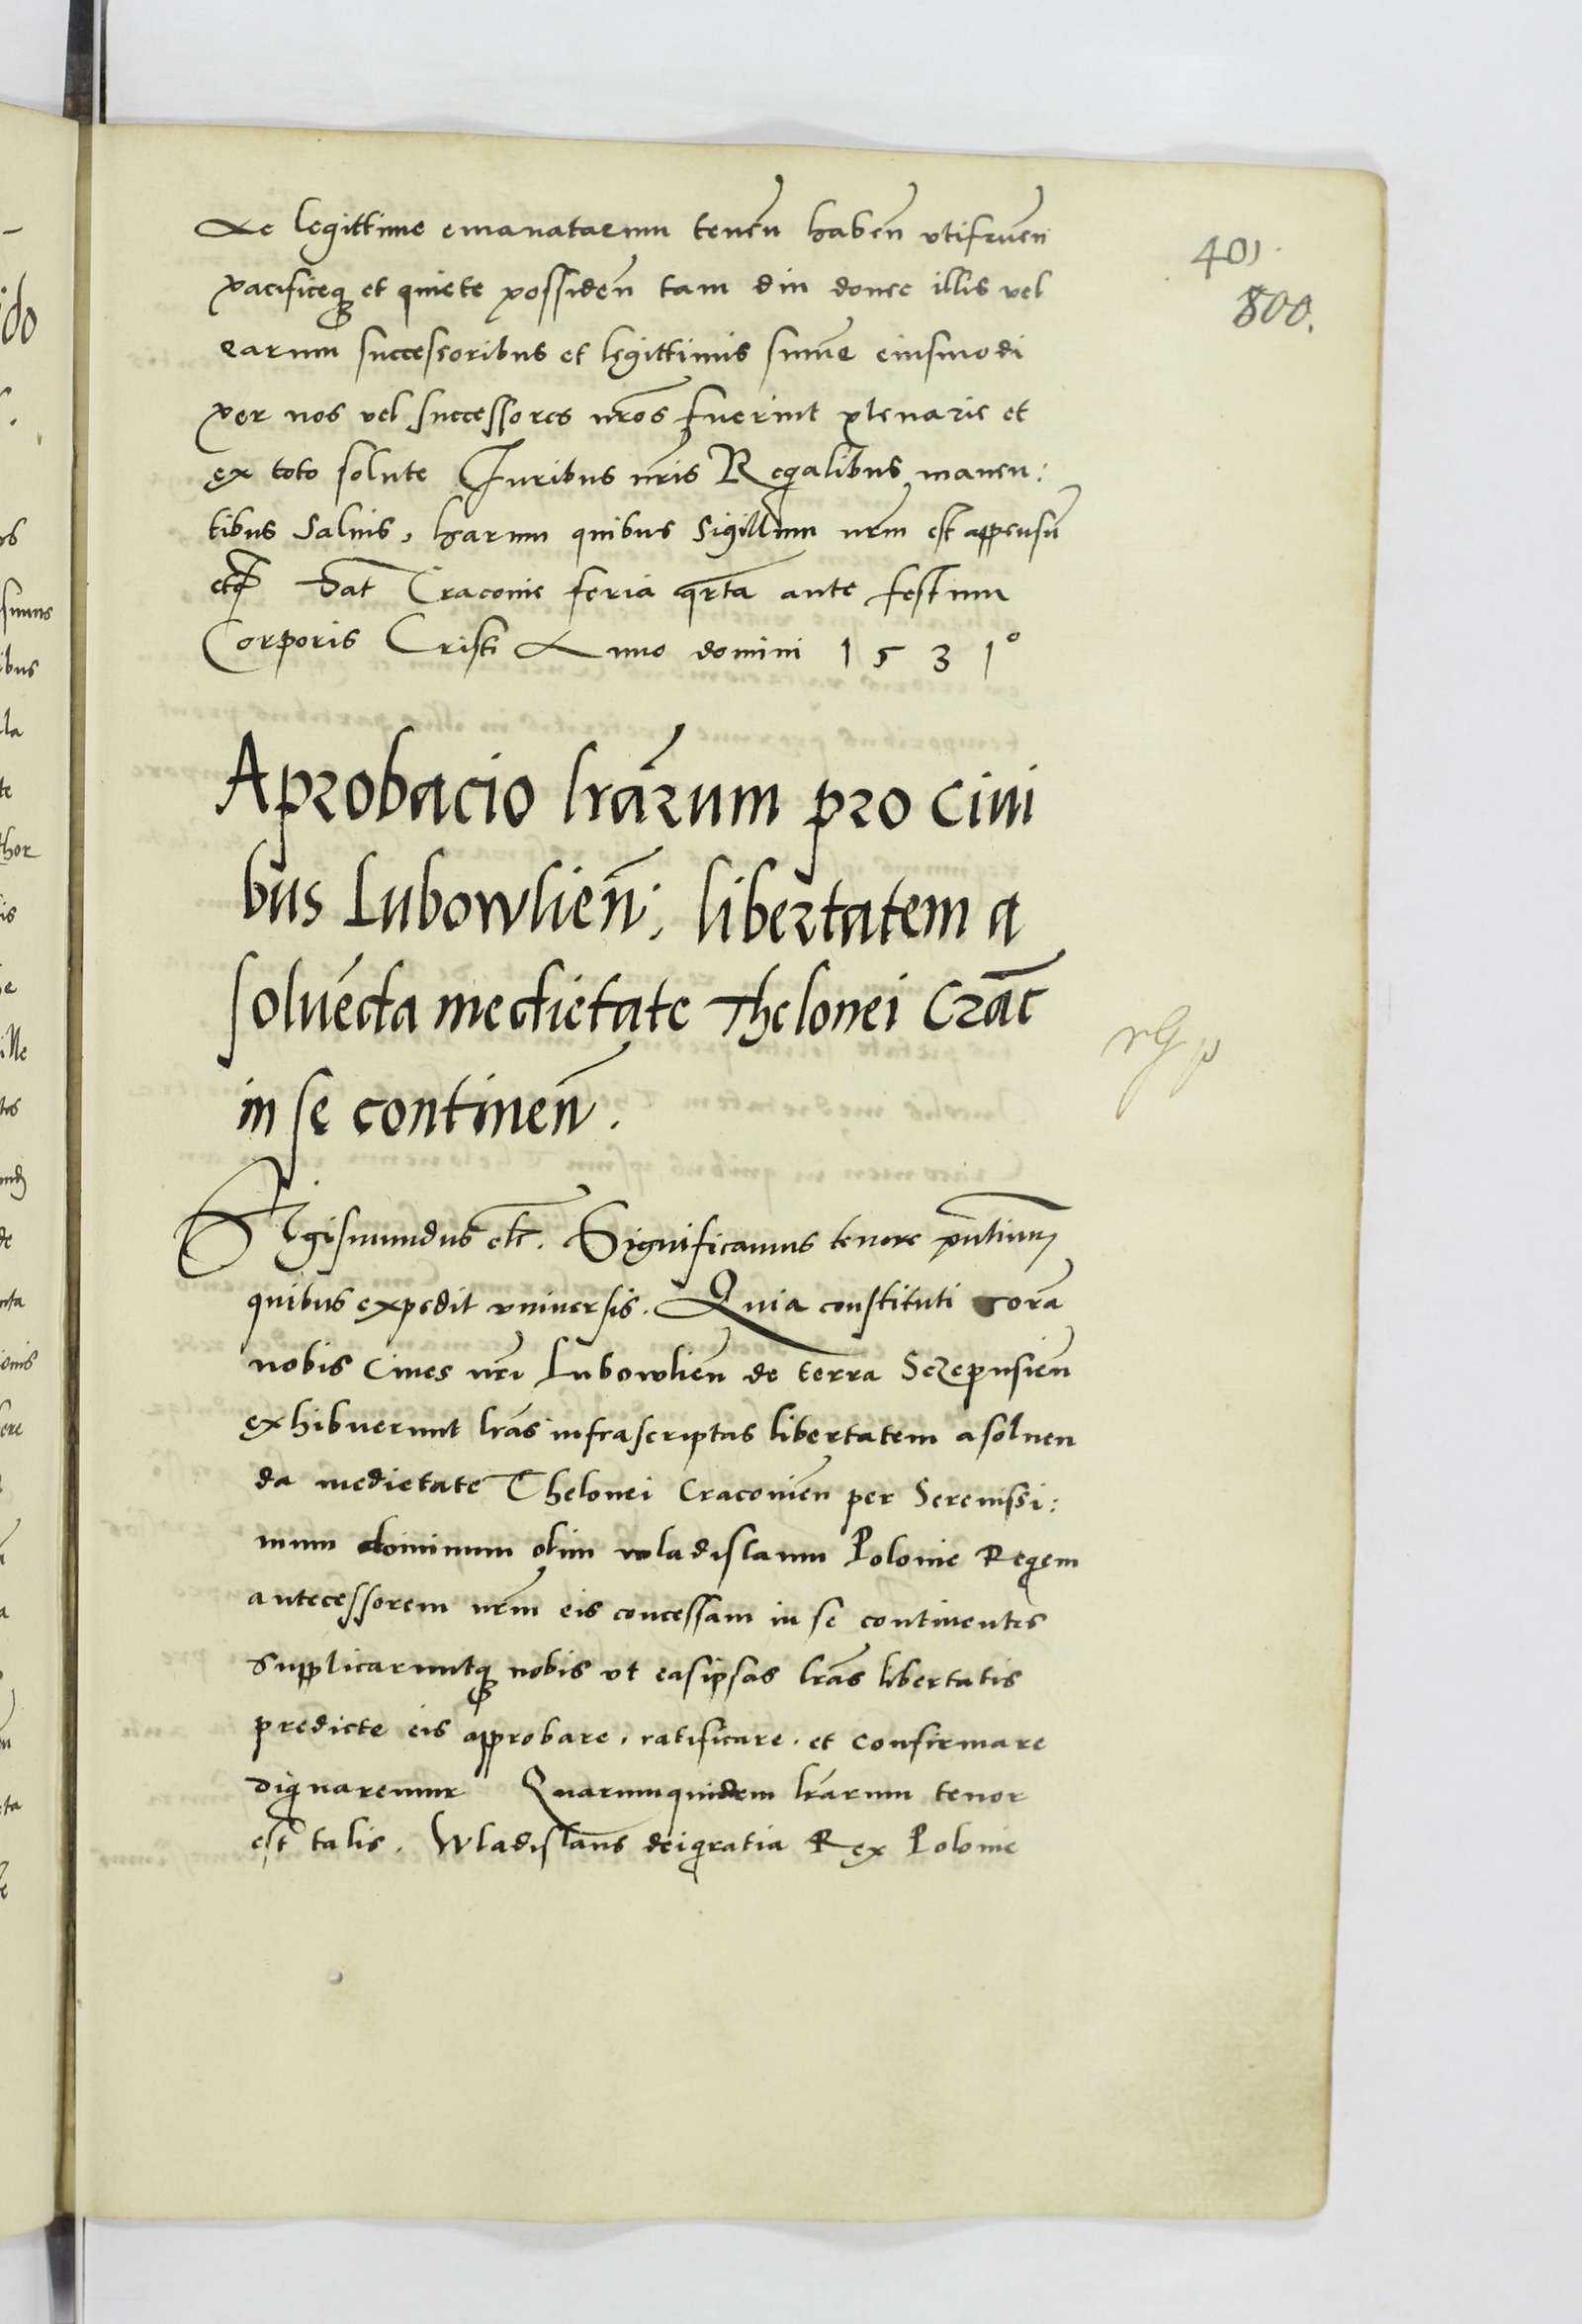 Ac legittime emanatarum tenen̄ haben̄ vtifruen̄
401.
pacificeq3 et quiete possiden̄ tam diu donec illis vel
800.
earum successoribus et legittimis sum̄e eiusmodi
per nos vel successores nr̄os fuerint plenarie et
ex toto solute Juribus nr̄is Regalibus manen:
tibus Saluis, harum quibus Sigillum nrm̄ est appensū
Dat̄ Cracouie feria qrta ante festum
Corporis Cristi Anno domini 1531º
Aprobacio lrārum pro ciui
bus Lubowlien̄: libertatem a
soluēda medietate Thelonei Crac̄
in se continen̄.
Sigismundus etc̄. Significamus tenore pn̄tium
quibus expedit vniuersis. Quia constituti corā
nobis Ciues nr̄i Lubowlien̄ de terra Sczepusien̄
exhibuerunt lrās infrascriptas libertatem a soluen
da medietate Thelonei Cracouien̄ per Serenissi:
mum dominum olim wladislaum Polonie Regem
antecessorem nrm̄ eis concessam in se continentes
Supplicaruntq3 nobis vt easipsas lrās libertatis
predicte eis approbare, ratificare, et confirmare
dignaremur Quarumquidem lrārum tenor
est talis. Wladislaus deigratia Rex Polonie